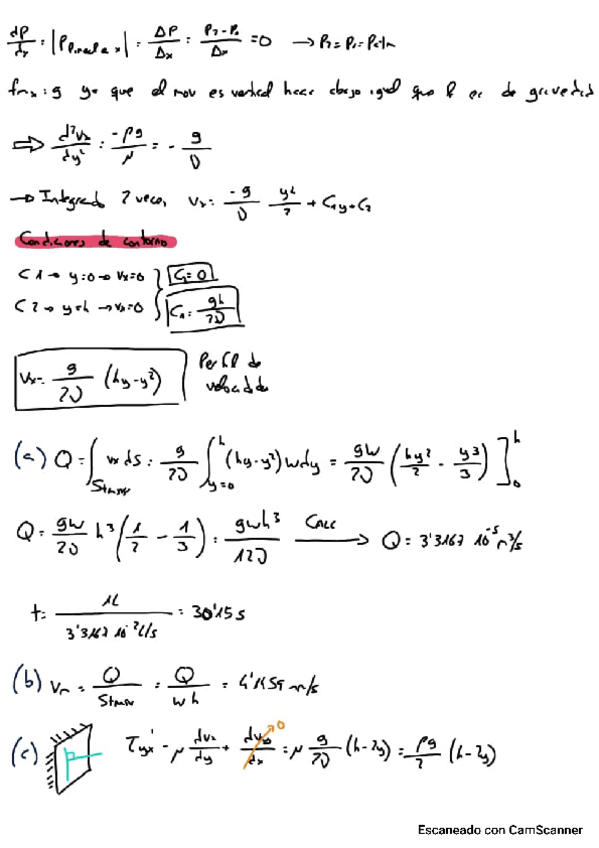 dP/dx = |P lineal a x| = ΔP/Δx = (P2 - P1)/Δx = 0 → P2 = P1 = Patm
fmx = g ya que el mov es vertical hacia abajo igual que la ac de gravedad
⇒ d²vx/dy² = -ρg/μ = - g/ν
→ Integrando 2 veces, vx = -g/ν y²/2 + C1y + C2
Condiciones de contorno
C1 → y=0 → vx=0 } C2 = 0
C2 → y=h → vx=0 } C1 = gh/2ν
vx = g/2ν (hy-y²) Perfil de velocidades
(a) Q = ∫Stransv vx ds = g/2ν ∫y=0^h (hy-y²) w dy = gw/2ν (hy²/2 - y³/3)]0^h
Q = gw/2ν h³ (1/2 - 1/3) = gwh³/12ν CALC → Q = 3'3167 10^-5 m³/s
t = 1L / 3'3167 10^-2 l/s = 30'15 s
(b) vm = Q/Stransv = Q/wh = 4'1459 m/s
(c) τyx = μ dvx/dy + dvy/dx 0 = μ g/2ν (h-2y) = ρg/2 (h-2y)
Escaneado con CamScanner